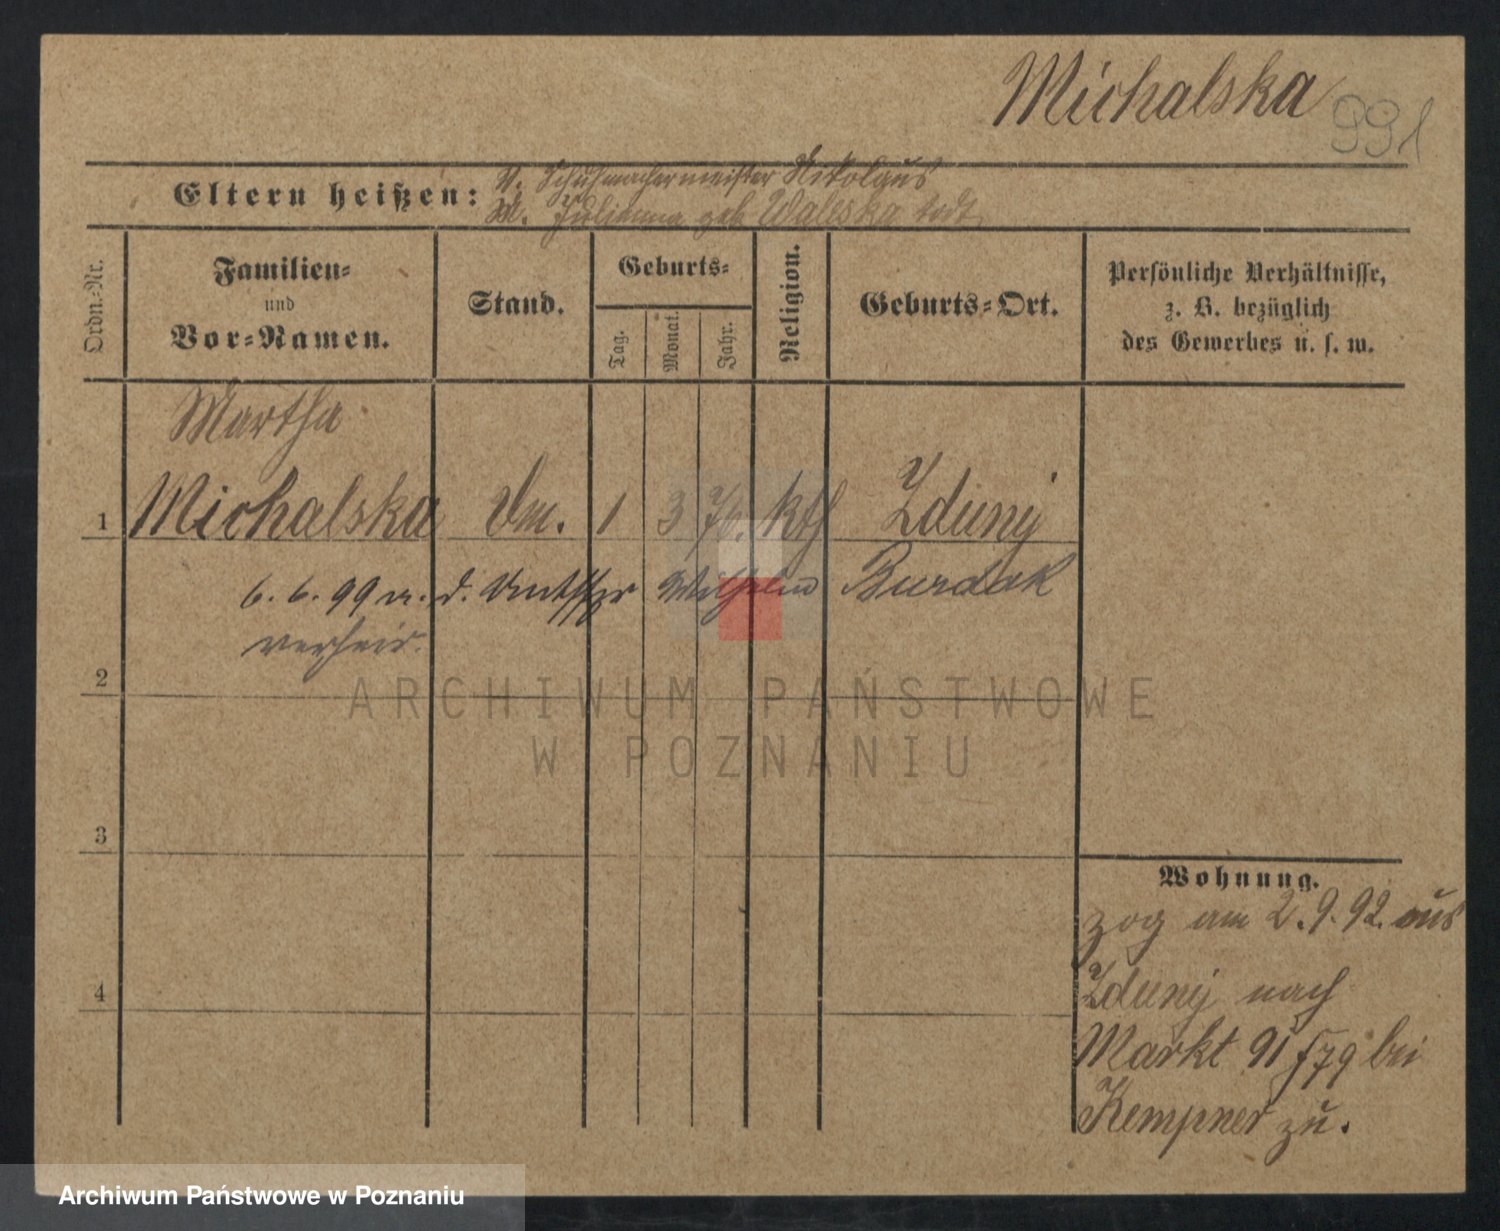 Michalska
991
Eltern heißen: V. Schuhmachermeister Nikolaus
M. Julianna geb Waleska todt
Ordn.-Nr.
Familien-
und
Vor-Namen.
Stand.
Geburts-
Tag.
Monat.
Jahr.
Religion.
Geburts-Ort.
Persönliche Verhältnisse,
z. B. bezüglich
des Gewerbes u. s. w.
Martha
1 Michalska 1 3 76. kth Zduny
6. 6. 99 m. d. Wilhelm Burdak
verheir.
2
ARCHIWUM PAŃSTWOWE
W POZNANIU
3
4
Wohnung.
zog am 2.9.92. aus
Zduny nach
Markt 91 bei
Kempner zu.
Archiwum Państwowe w Poznaniu